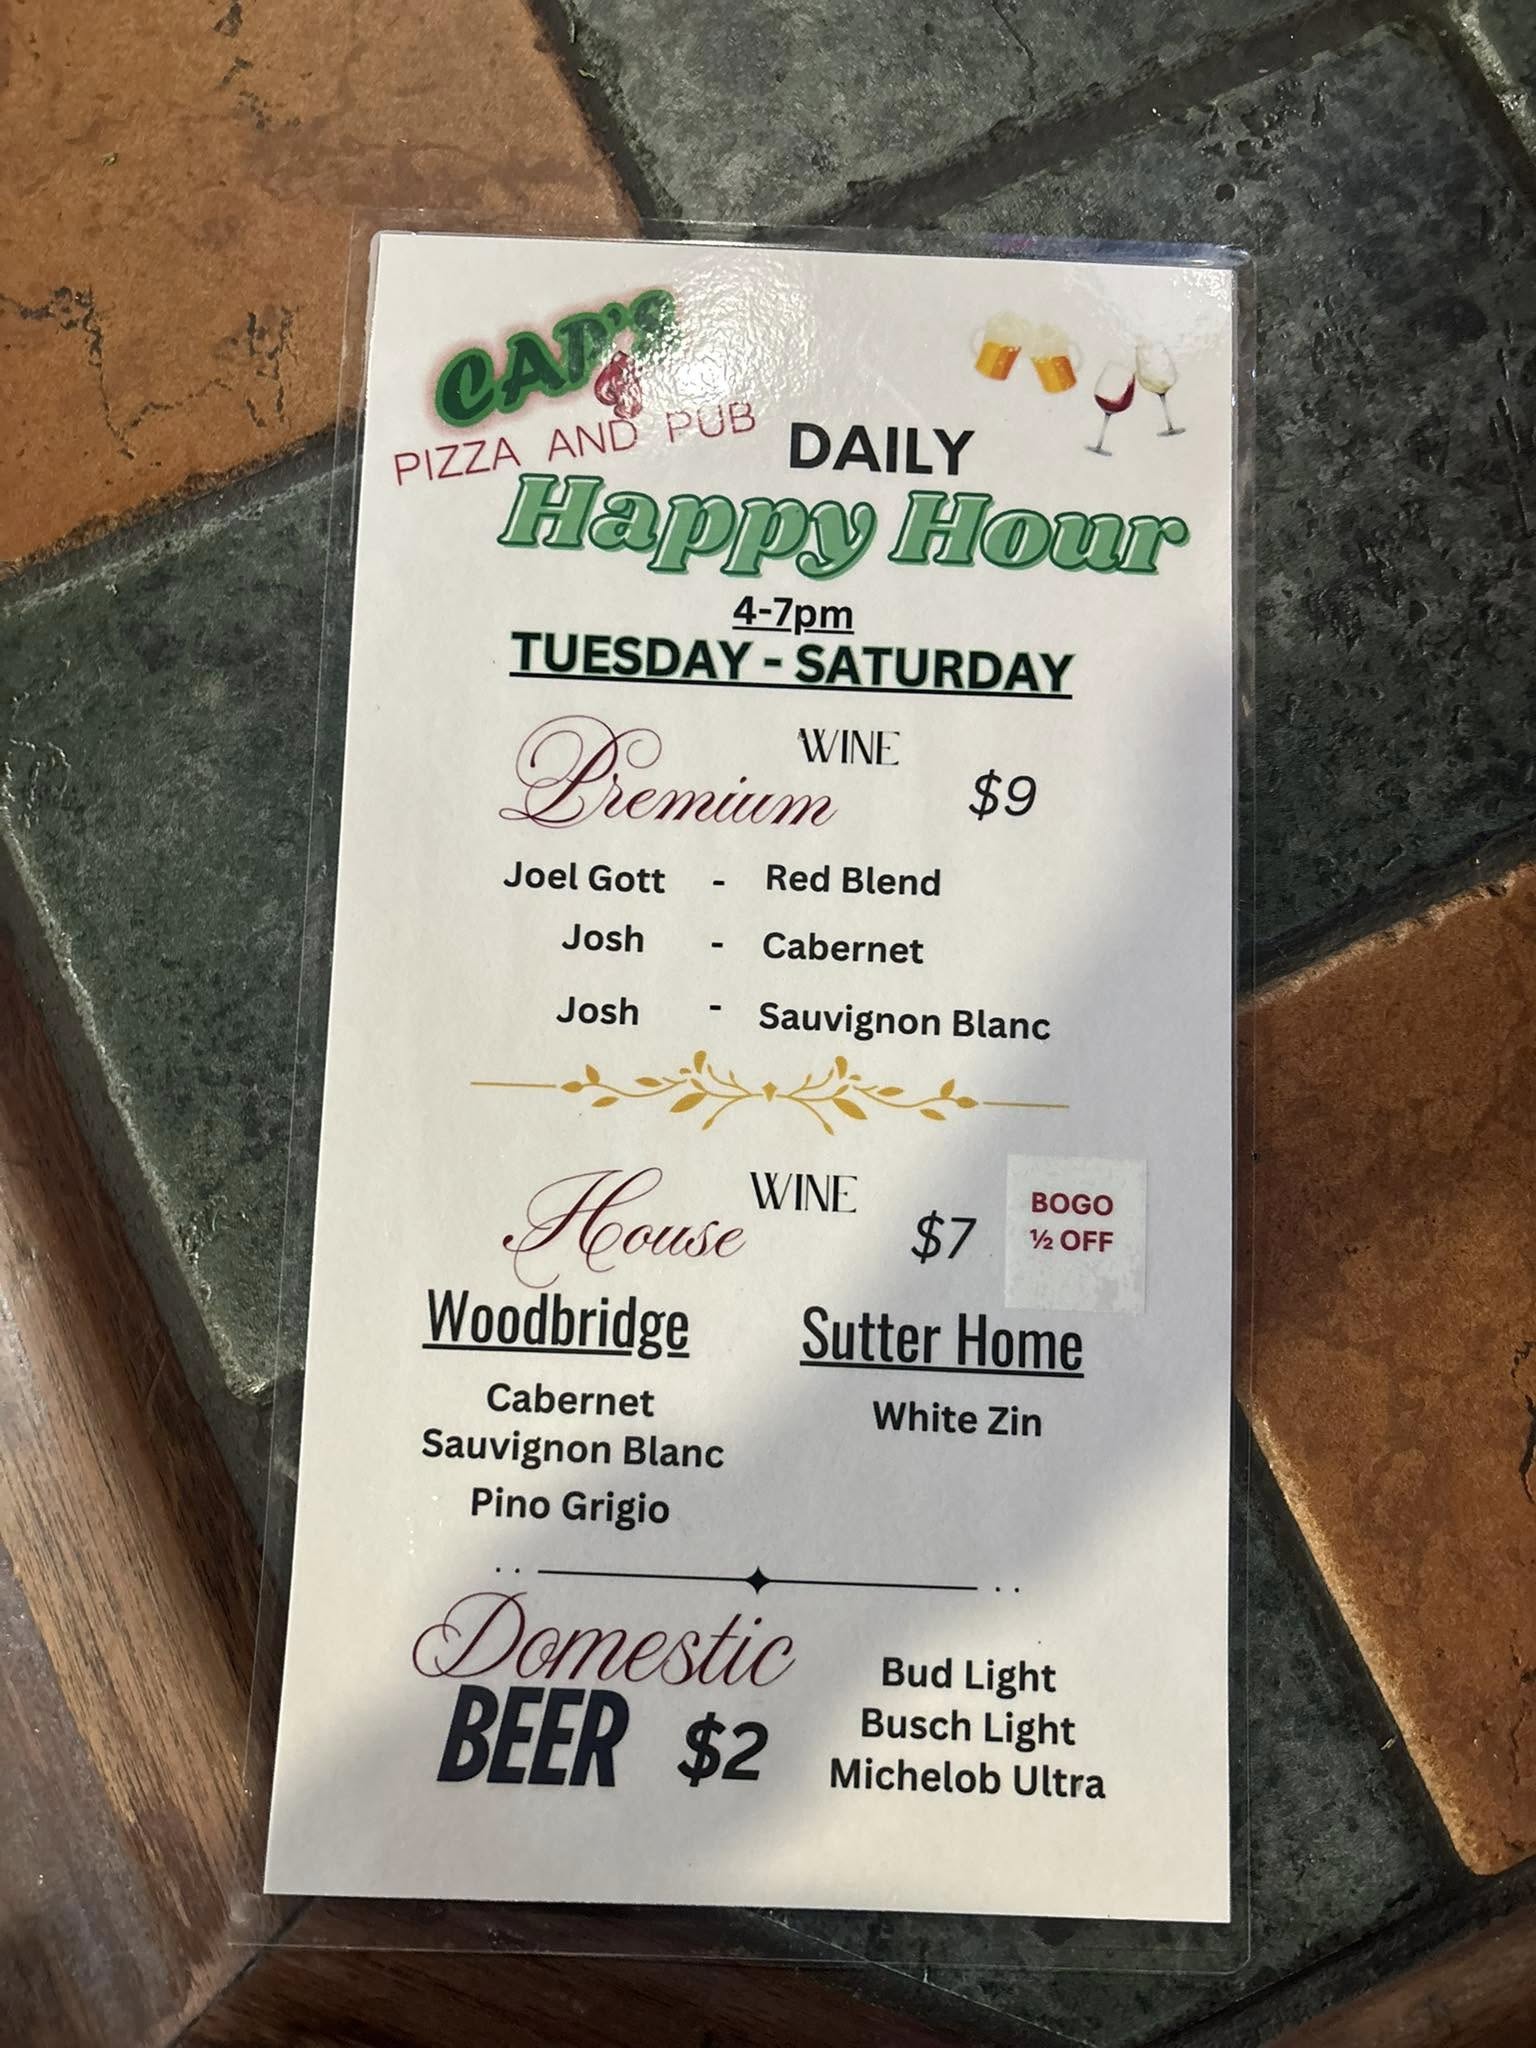 CAP'S
PIZZA AND PUB
DAILY
Happy Hour
4-7pm
TUESDAY - SATURDAY
Premium WINE $9
Joel Gott - Red Blend
Josh - Cabernet
Josh - Sauvignon Blanc
House WINE $7
BOGO
½ OFF
Woodbridge
Cabernet
Sauvignon Blanc
Pino Grigio
Sutter Home
White Zin
Domestic
BEER $2
Bud Light
Busch Light
Michelob Ultra